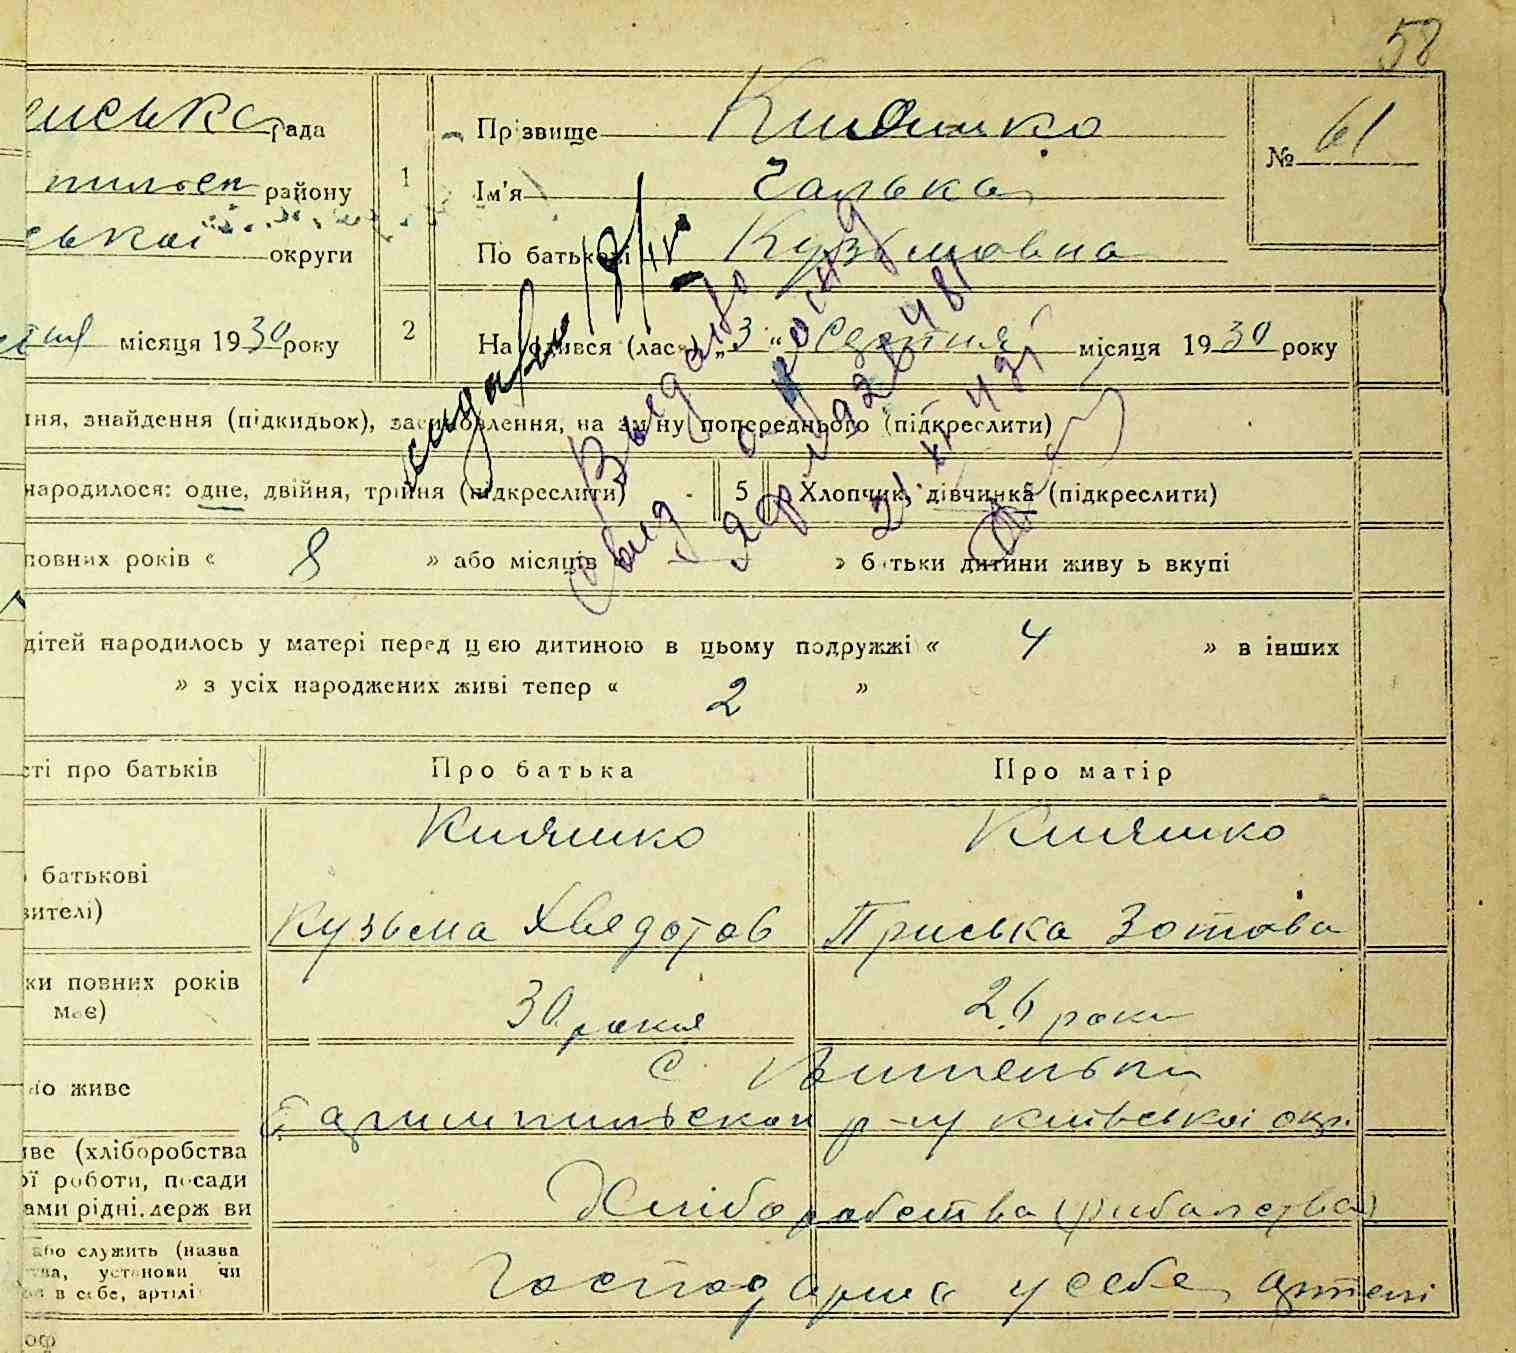 58
иська рада
пильськ району
ської округи
1
Прізвище Кияшко
№ 61
Ім'я Галька
По батькові Кузьмовна
ічня місяця 1930 року
2
Народився (лася) „3“ Січня місяця 1930 року
ння, знайдення (підкидьок), засиновлення, на зміну попереднього (підкреслити)
народилося: одне, двійня, трійня (підкреслити)
5
Хлопчик, дівчинка (підкреслити)
повних років « 8 » або місяців « — » батьки дитини живуть вкупі
дітей народилось у матері перед цією дитиною в цьому подружжі « 4 » в інших
» з усіх народжених живі тепер « 2 »
сті про батьків
Про батька
Про матір
Кияшко
Кияшко
батькові
вителі)
Кузьма Хведотов
Приська Зотова
ки повних років
має)
30 років
26 роки
но живе
с. Вишеньки
Баришпильскоі р-ну киівськоі окр.
иве (хліборобства
ої роботи, посади
ами рідні, держави
Хліборобства (рибальства)
або служить (назва
тва, установи чи
в себе, артілі
Господарює у себе, артілі
оф
Выедано
свид